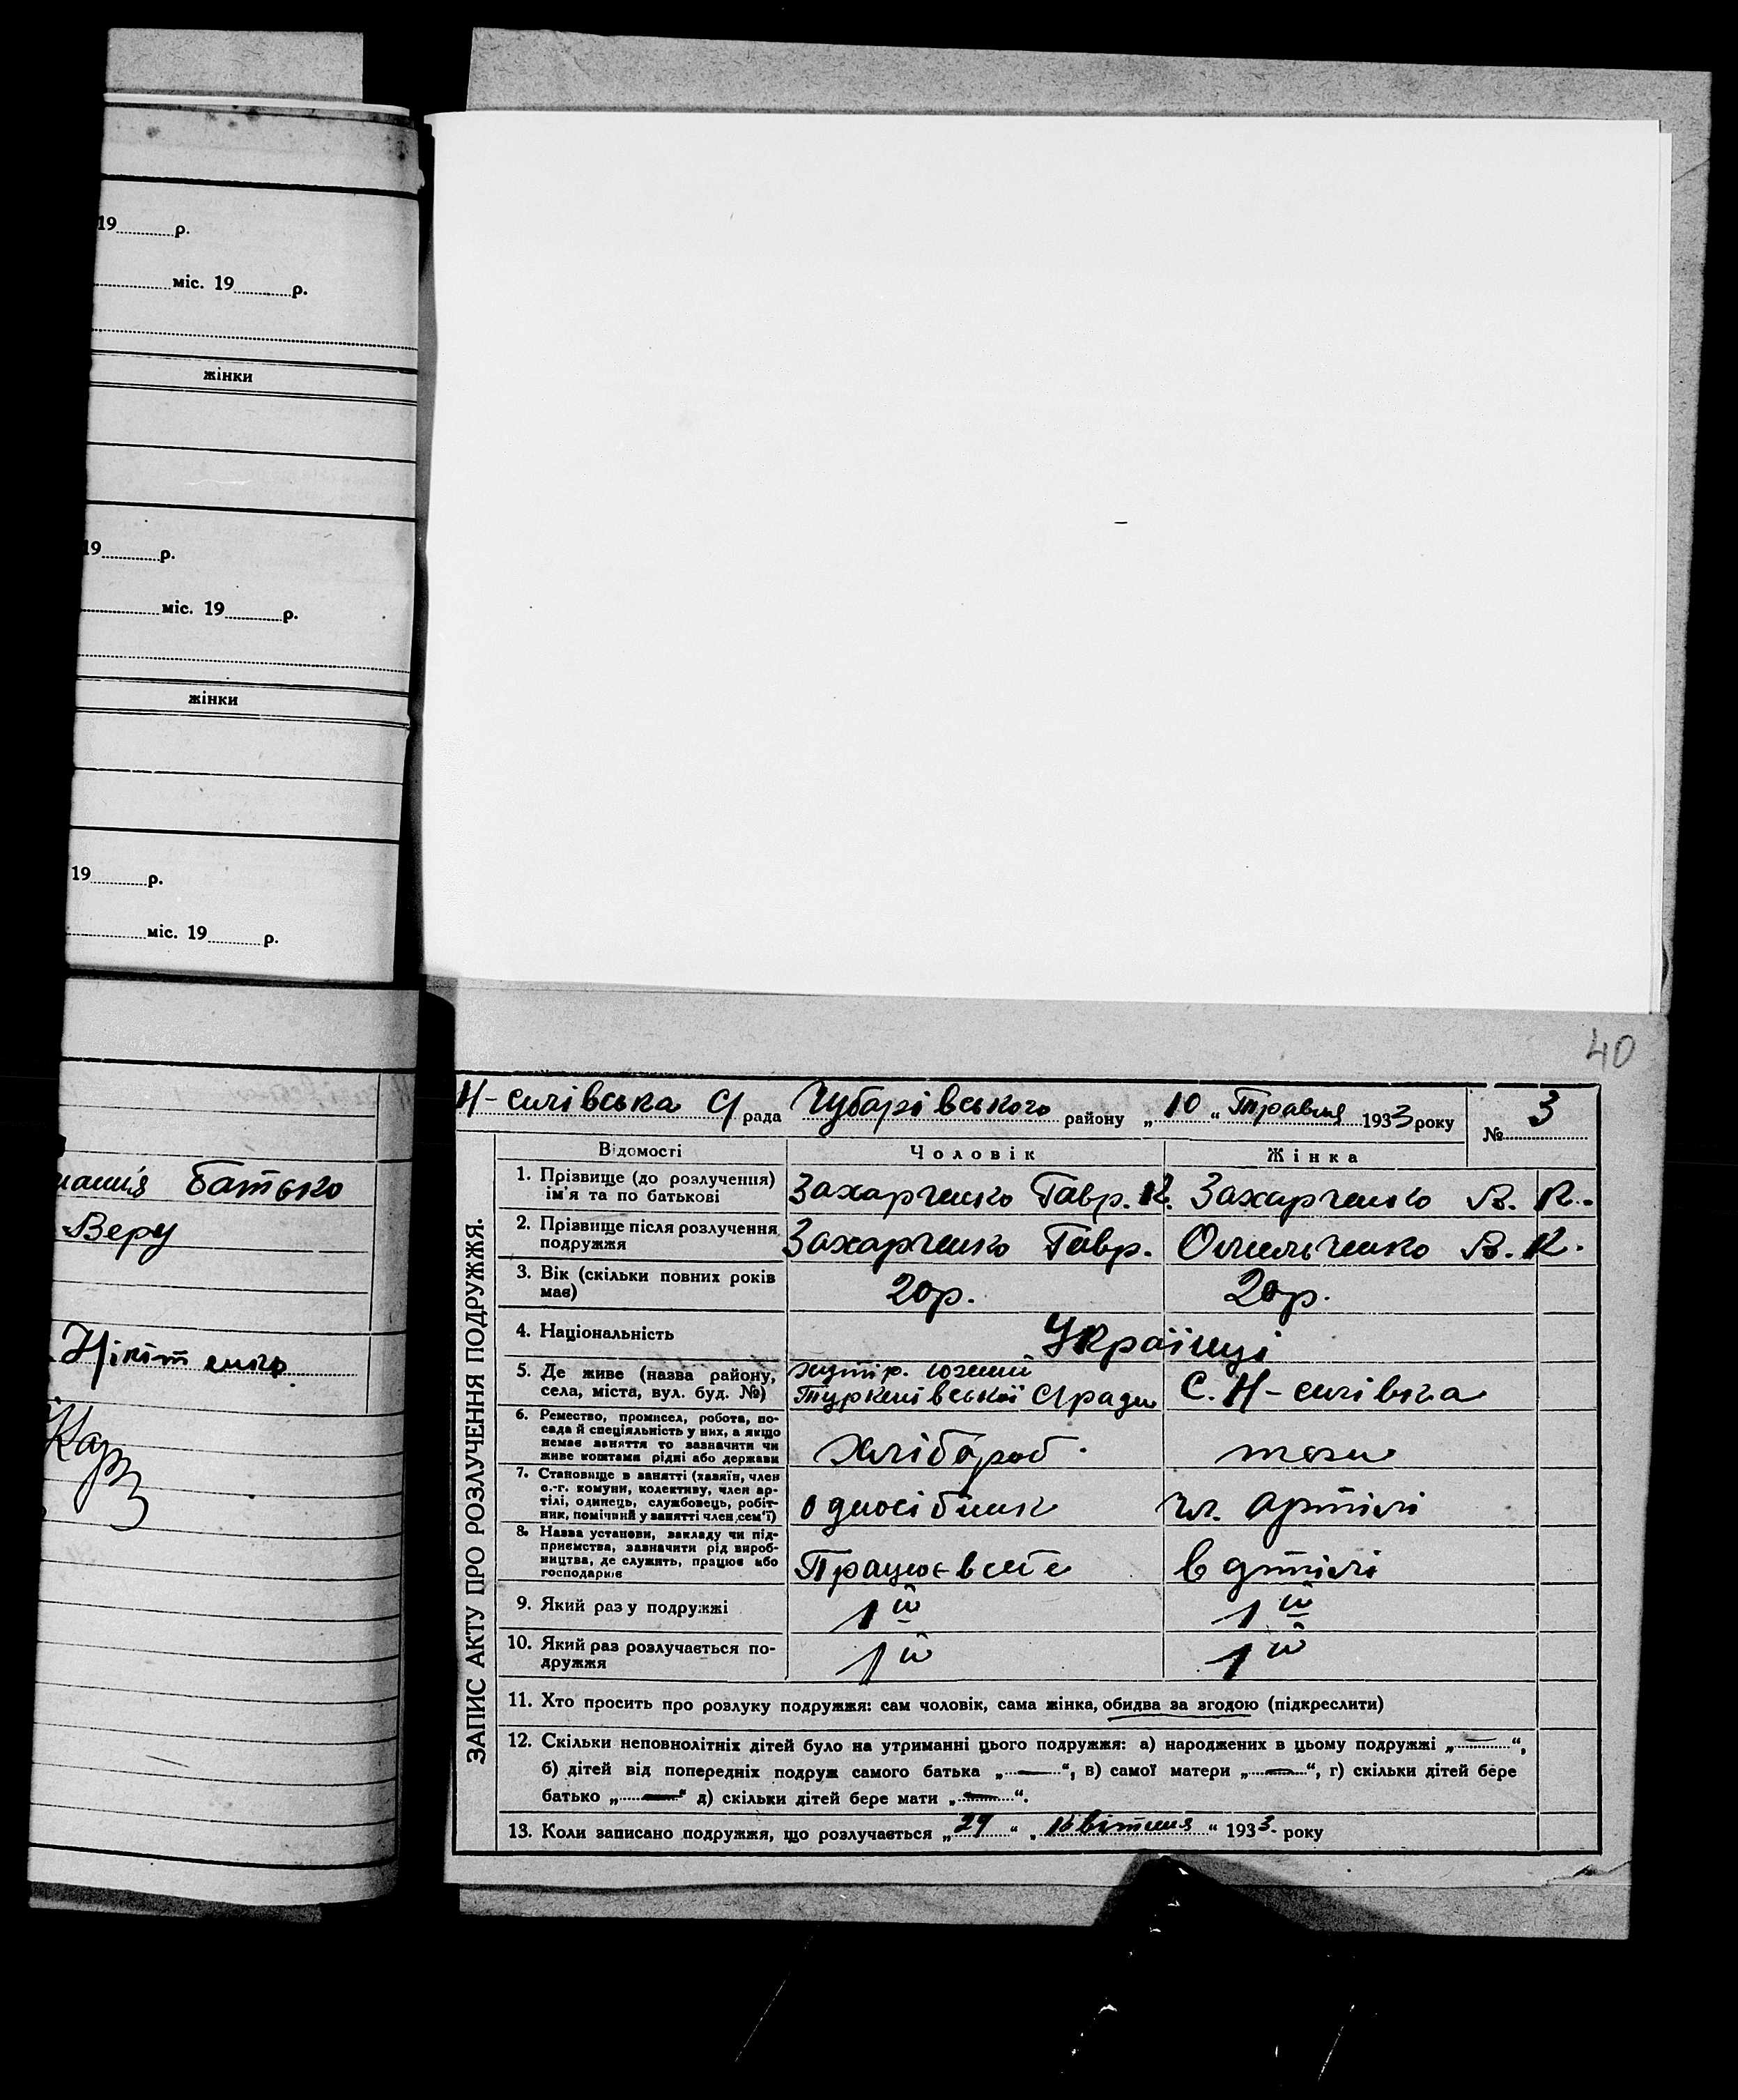 19 р.
міс. 19 р.
жінки
19 р.
міс. 19 р.
жінки
19 р.
міс. 19 р.
Батько
Веру
40
рада Чубарівського району „10“ Травня 1933 року № 3
ЗАПИС АКТУ ПРО РОЗЛУЧЕННЯ ПОДРУЖЖЯ.
Відомості Чоловік Жінка
1. Прізвище (до розлучення) ім'я та по батькові Захарченко Гавр. К. Захарченко В. К.
2. Прізвище після розлучення подружжя Захарченко Гавр. Омельченко В. К.
3. Вік (скільки повних років має) 20р. 20р.
4. Національність Українці
5. Де живе (назва району, села, міста, вул. буд. №) хутір. С. Н-
6. Ремество, промисел, робота, посада й спеціяльність у них, а якщо немає заняття то зазначити чи живе коштами рідні або держави хлібороб
7. Становище в занятті (хазяїн, член с.-г. комуни, колективу, член артілі, одинець, службовець, робітник, помічний у занятті член сем'ї) односібник чл. артілі
8. Назва установи, закладу чи підприємства, зазначити рід виробництва, де служить, працює або господарює Працює в себе в артілі
9. Який раз у подружжі 1й 1й
10. Який раз розлучається подружжя 1й 1й
11. Хто просить про розлуку подружжя: сам чоловік, сама жінка, обидва за згодою (підкреслити)
12. Скільки неповнолітніх дітей було на утриманні цього подружжя: а) народжених в цьому подружжі „—“,
б) дітей від попередніх подруж самого батька „—“, в) самої матери „—“, г) скільки дітей бере
батько „—“ д) скільки дітей бере мати „—“.
13. Коли записано подружжя, що розлучається „29“ „Квітня“ 1933 року